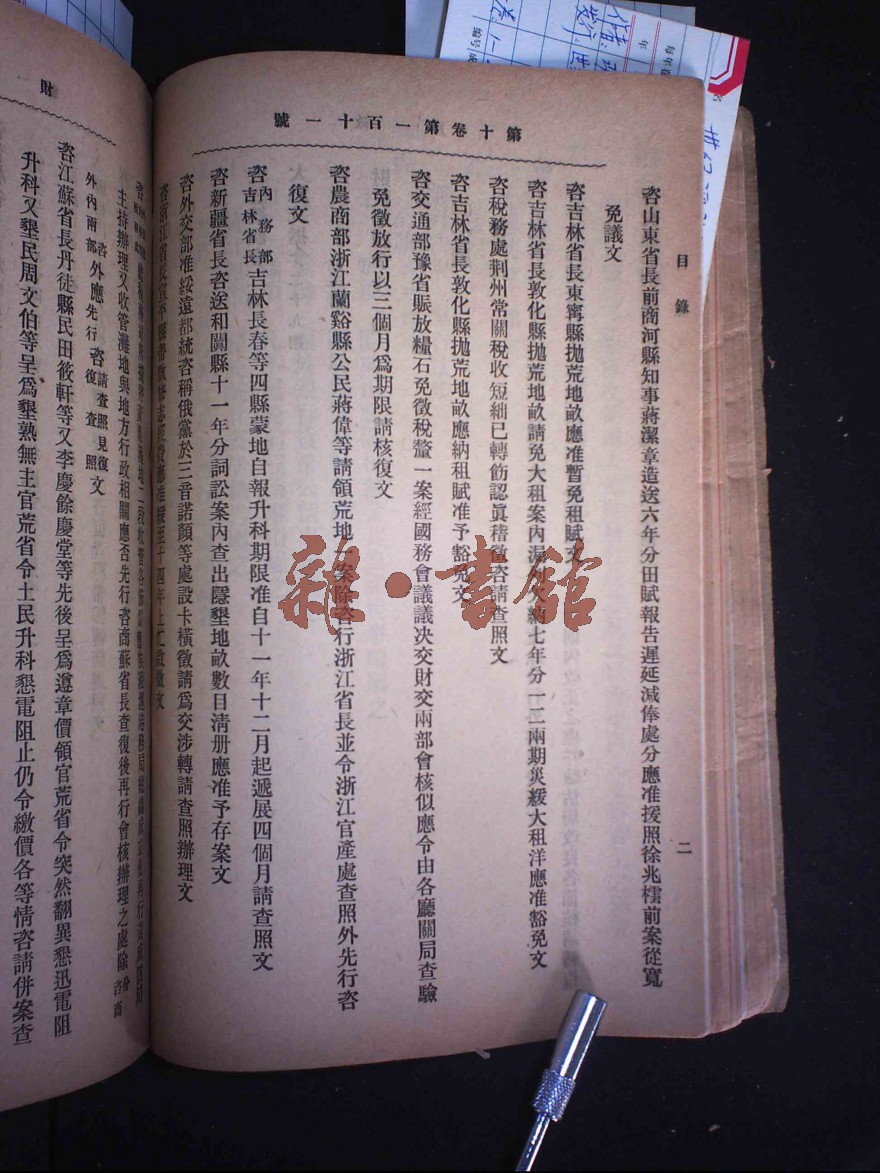 第十卷第一百十一號
目錄
二
咨山東省長前商河縣知事蔣潔章造送六年分田賦報告遲延減俸處分應准援照徐兆橒前案從寬
免議文
咨吉林省長東寗縣拋荒地畝應准暫免租賦文
咨吉林省長敦化縣拋荒地畝請免大租案內漏列欠納七年分一二兩期災緩大租洋應准豁免文
咨稅務處荆州常關稅收短絀已轉飭認眞稽徵咨請查照文
咨吉林省長敦化縣拋荒地畝應納租賦准予豁免文
咨交通部豫省賑放糧石免徵稅釐一案經國務會議議決交財交兩部會核似應令由各廳關局查驗
免徵放行以三個月爲期限請核復文
咨農商部浙江蘭谿縣公民蔣偉等請領荒地一案除咨行浙江省長並令浙江官產處查照外先行咨
復文
咨內務部吉林省長吉林長春等四縣蒙地自報升科期限准自十一年十二月起遞展四個月請查照文
咨新疆省長咨送和闐縣十一年分詞訟案內查出隱墾地畝數目清册應准予存案文
咨外交部准綏遠都統咨稱俄黨於三音諾顏等處設卡橫徵請爲交涉轉請查照辦理文
主持辦理又收管灘地與地方行政相關應否先行咨商蘇省長查復後再行會核辦理之處除
外內兩部咨外應先行咨請查照見復復查照文
咨江蘇省長丹徒縣民田筱軒等又李慶餘慶堂等先後呈爲遵章價領官荒省令突然翻異懇迅電阻
升科又墾民周文伯等呈爲墾熟無主官荒省令土民升科懇電阻止仍令繳價各等情咨請併案查
財
雜·書館